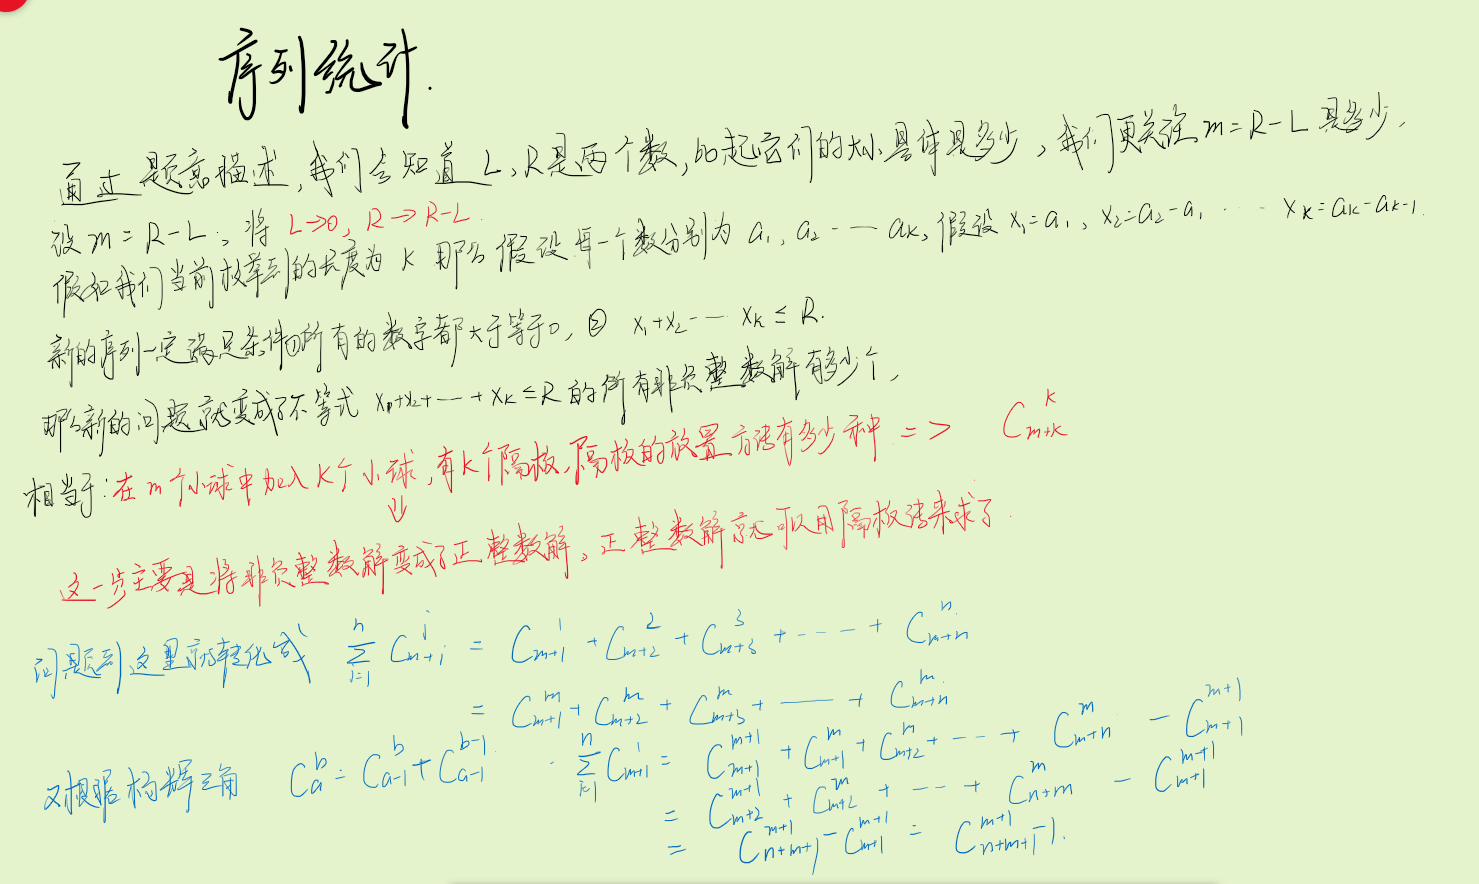 序列统计.
通过题意描述,我们会知道 L、R是两个数,比起它们的大小具体是多少,我们更关注 m=R-L 是多少.
设 m=R-L., 将 L→0, R→R-L.
假如我们当前枚举到的长度为 K 那么假设每一个数分别为 a₁, a₂ ⋯ aₖ, 假设 x₁=a₁, x₂=a₂-a₁ ⋯ xₖ=aₖ-aₖ₋₁.
新的序列一定满足条件①所有的数字都大于等于0, ② x₁+x₂⋯ xₖ ≤ R.
那么新的问题就变成了不等式 x₁+x₂+⋯+xₖ≤R 的所有非负整数解有多少个,
相当于:在m个小球中加入K个小球,有K个隔板,隔板的放置方法有多少种 => C_{m+k}^{k}
↓
这一步主要是将非负整数解变成了正整数解。正整数解就可以用隔板法来求了.
问题到这里就转化成 \sum_{i=1}^{n} C_{m+i}^{i} = C_{m+1}^{1} + C_{m+2}^{2} + C_{m+3}^{3} + ⋯ + C_{m+n}^{n}.
= C_{m+1}^{m} + C_{m+2}^{m} + C_{m+3}^{m} + ⋯ + C_{m+n}^{m}.
又根据杨辉三角 C_{a}^{b} = C_{a-1}^{b} + C_{a-1}^{b-1} . \sum_{i=1}^{n} C_{m+i}^{i} = C_{m+1}^{m+1} + C_{m+1}^{m} + C_{m+2}^{m} + ⋯ + C_{m+n}^{m} - C_{m+1}^{m+1}
= C_{m+2}^{m+1} + C_{m+2}^{m} + ⋯ + C_{n+m}^{m} - C_{m+1}^{m+1}
= C_{n+m+1}^{m+1} - C_{m+1}^{m+1} = C_{n+m+1}^{m+1} - 1.